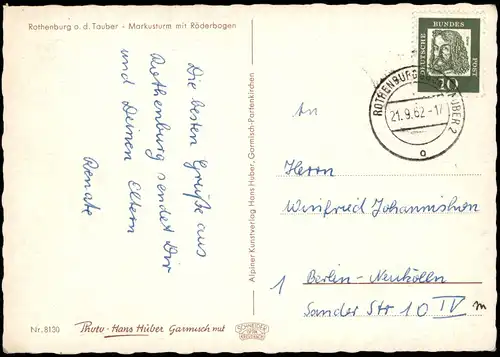 Rothenburg o. d. Tauber - Markusturm mit Röderbogen
Die besten Grüße aus
Rothenburg sendet Dir
und Deinen Eltern
Renate
Alpiner Kunstverlag Hans Huber, Garmisch-Partenkirchen
Nr. 8130
Photo-Hans Huber Garmisch
DEUTSCHE BUNDES POST
10
ROTHENBURG TAUBER 2
21.9.62-17
a
An
Herrn
Winfried Johannishon
1 Berlin-Neukölln
Sander Str 10 IV